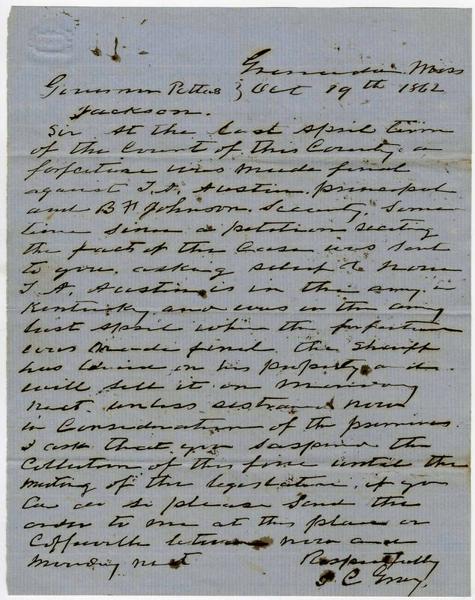 Grenada Miss
Governor Pettus } Oct 19th 1862
Jackson.
Sir At the last April term
of the Court of this County a
forfeiture was made final
against T. A. Austin, principal
and B F Johnson Security. Some
time since a petition reciting
the facts of the case was sent
to you. asking relief &
T. A. Austin is in the army in
Kentucky and was in the army
last April when the forfeiture
was made final the Sheriff
has levied on his property and
will sell it on Monday
next. unless restrained now
in Consideration of the premises
I ask that you suspend the
Collection of this fine until the
meeting of the legislature. if you
Can do so please send the
order to me at this place or
Coffeeville between now and
Monday next
Respectfully
J C Gray.